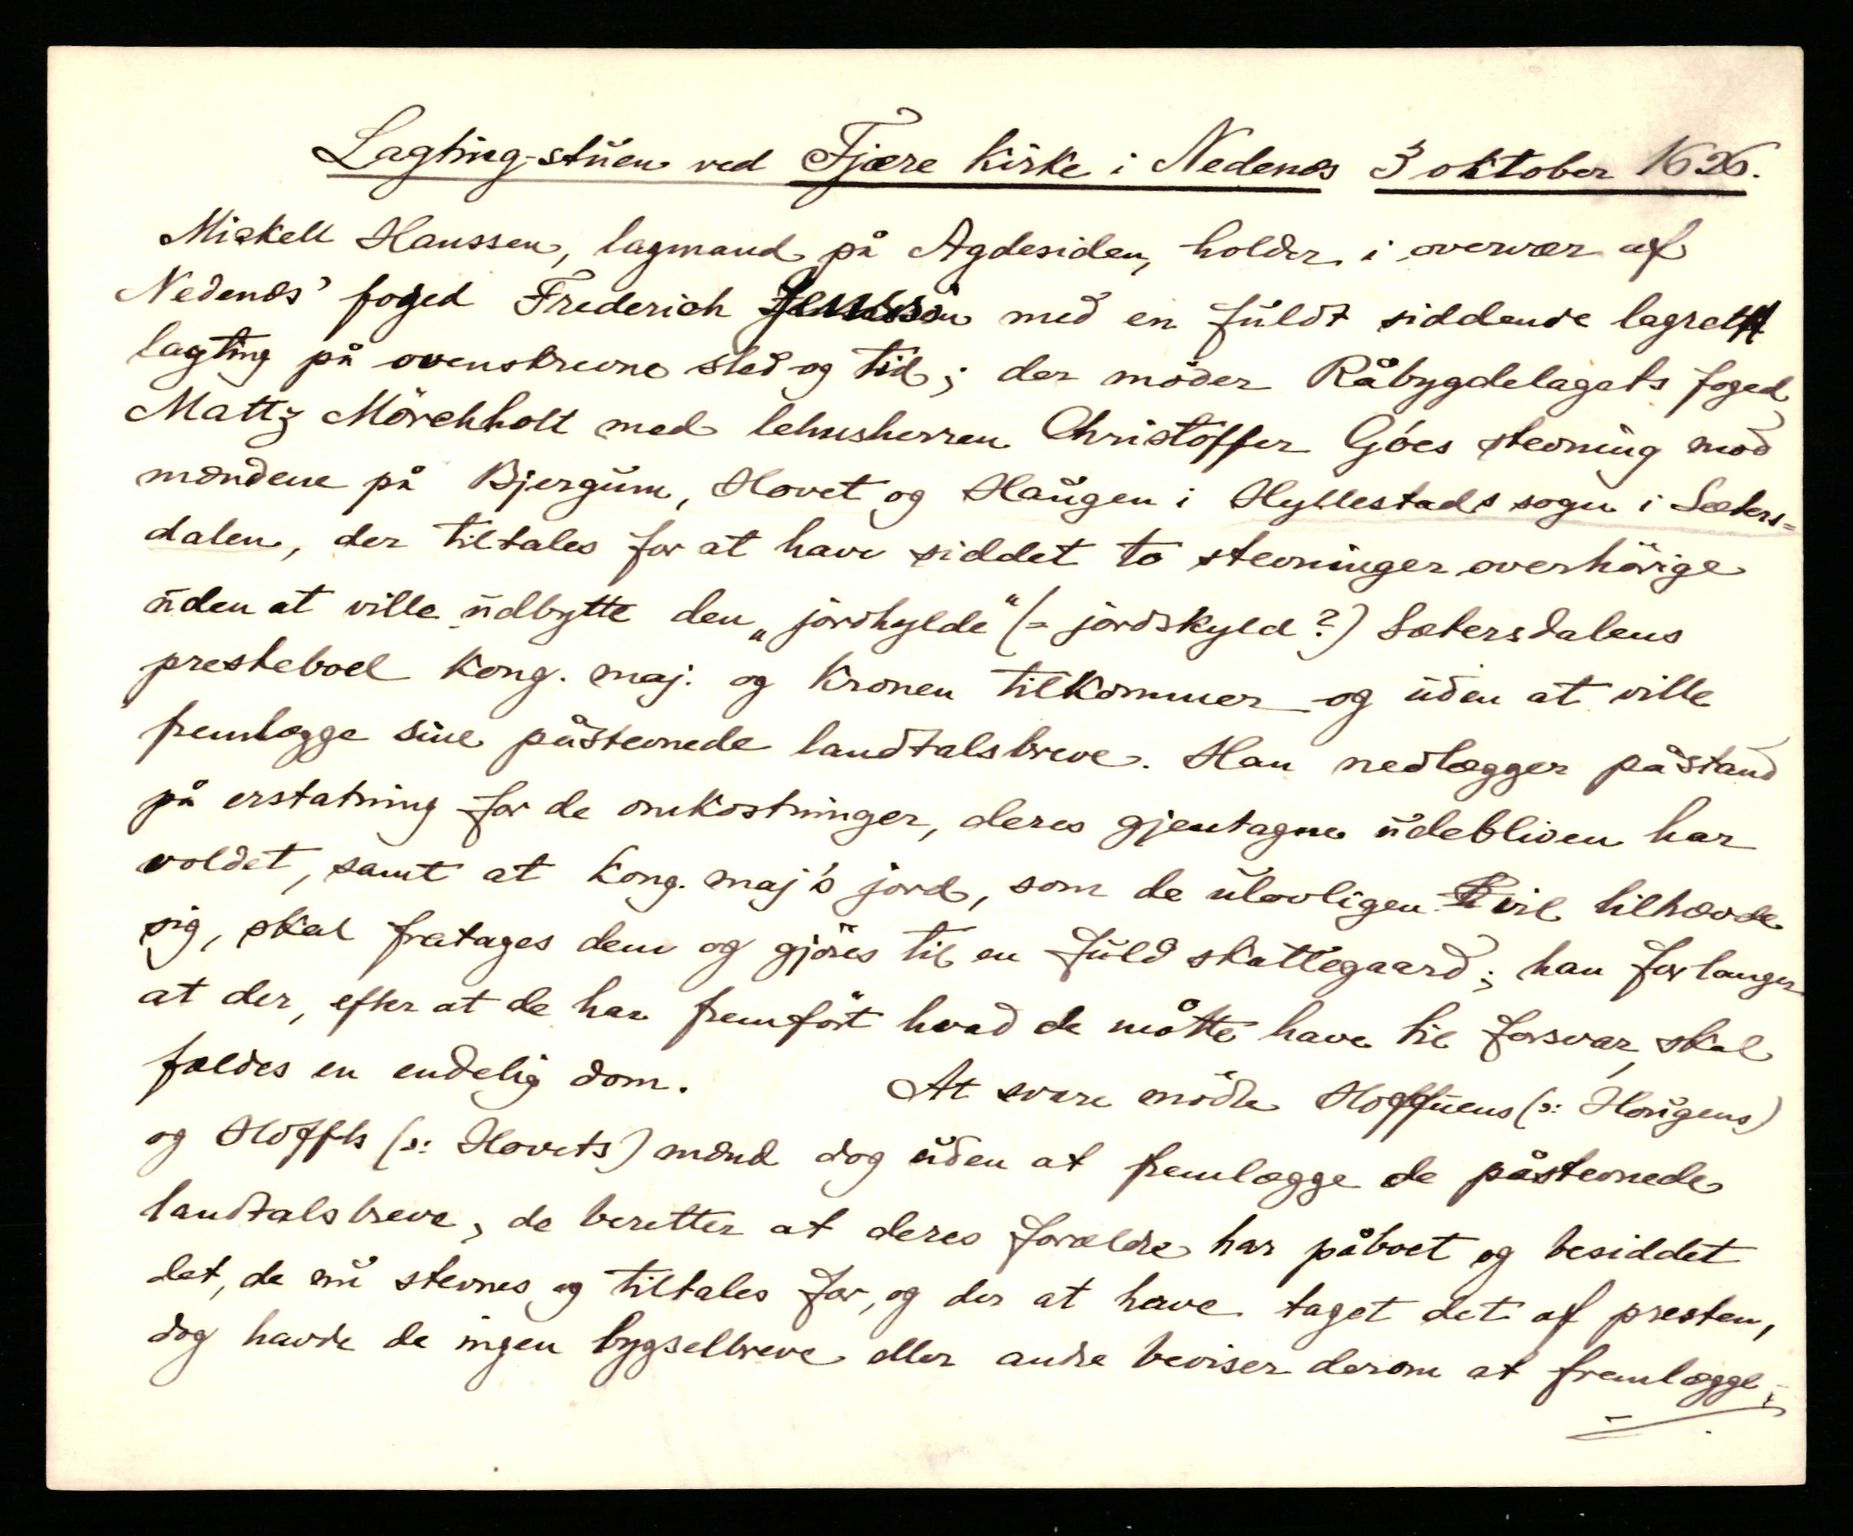 Lagting-stuen ved Fjære kirke i Nedenæs 3 oktober 1626.
Mickell Hanssen, lagmand på Agdesiden, holder i overvær af
Nedenæs' foged Frederich med en fuldt siddende lagrett
lagting på ovenskrevne sted og tid; der möder Råbygdelagets foged
Mattz Mörchholt med lehnsherren Christoffer Göes stevning mod
mændene på Bjergum, Hovet og Haugen i Hyllestads sogn i Sæters=
dalen, der tiltales for at have siddet to stevninger overhörige
uden at ville udbytte den „jordhylde“ (= jordskyld?) Sætersdalens
presteboel kong. maj. og kronen tilkommer og uden at ville
fremlægge sine påstevnede landtalsbreve. Han nedlægger påstand
på erstatning for de omkostninger, deres gjentagne udebliven har
voldet, samt at kong. maj's jord, som de ulovligen vil tilhævde
sig, skal fratages dem og gjöres til en fuld skattegaard; han forlanger
at der, efter at de har fremfört hvad de måtte have til forsvar, skal
fældes en endelig dom. At svare mödte Hoffuens (ɔ: Hougens)
og Hoffts (ɔ: Hovets) mænd dog uden at fremlægge de påstevnede
landtalsbreve, de beretter at deres forældre har påboet og besiddet
det, de nu stevnes og tiltales for, og der at have taget det af presten,
dog havde de ingen bygselbreve eller andre beviser derom at fremlægge;